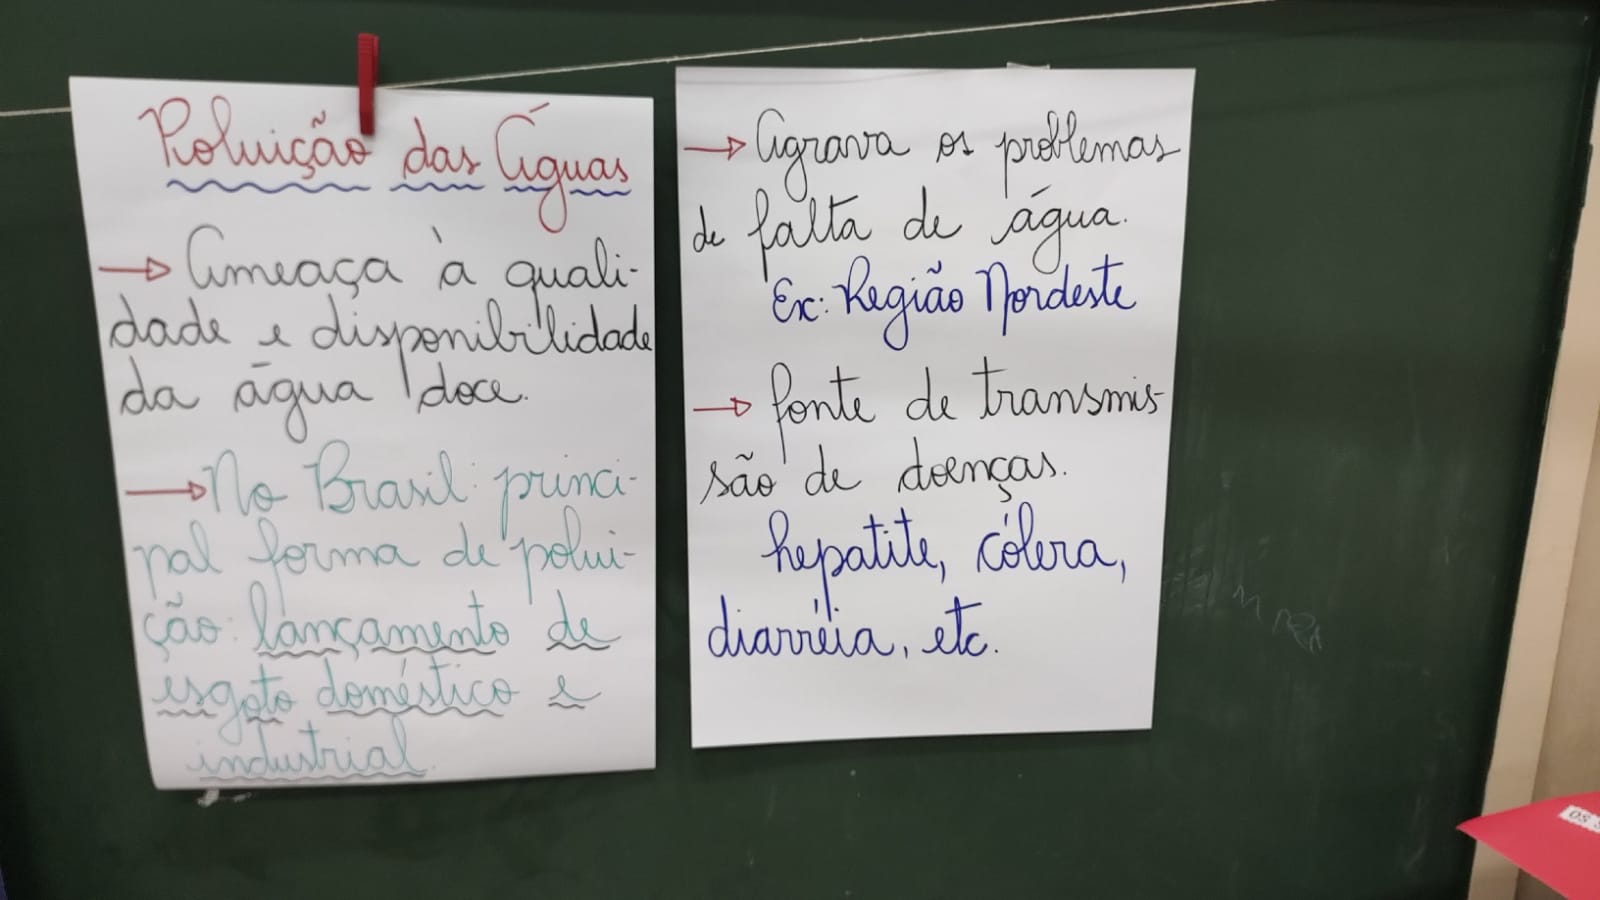 Poluição das Águas
→ Ameaça à quali-
dade e disponibilidade
da água doce.
→ No Brasil: princi-
pal forma de polui-
ção: lançamento de
esgoto doméstico e
industrial.
→ Agrava os problemas
de falta de água.
Ex: Região Nordeste
→ fonte de transmis-
são de doenças.
hepatite, cólera,
diarréia, etc.
OS